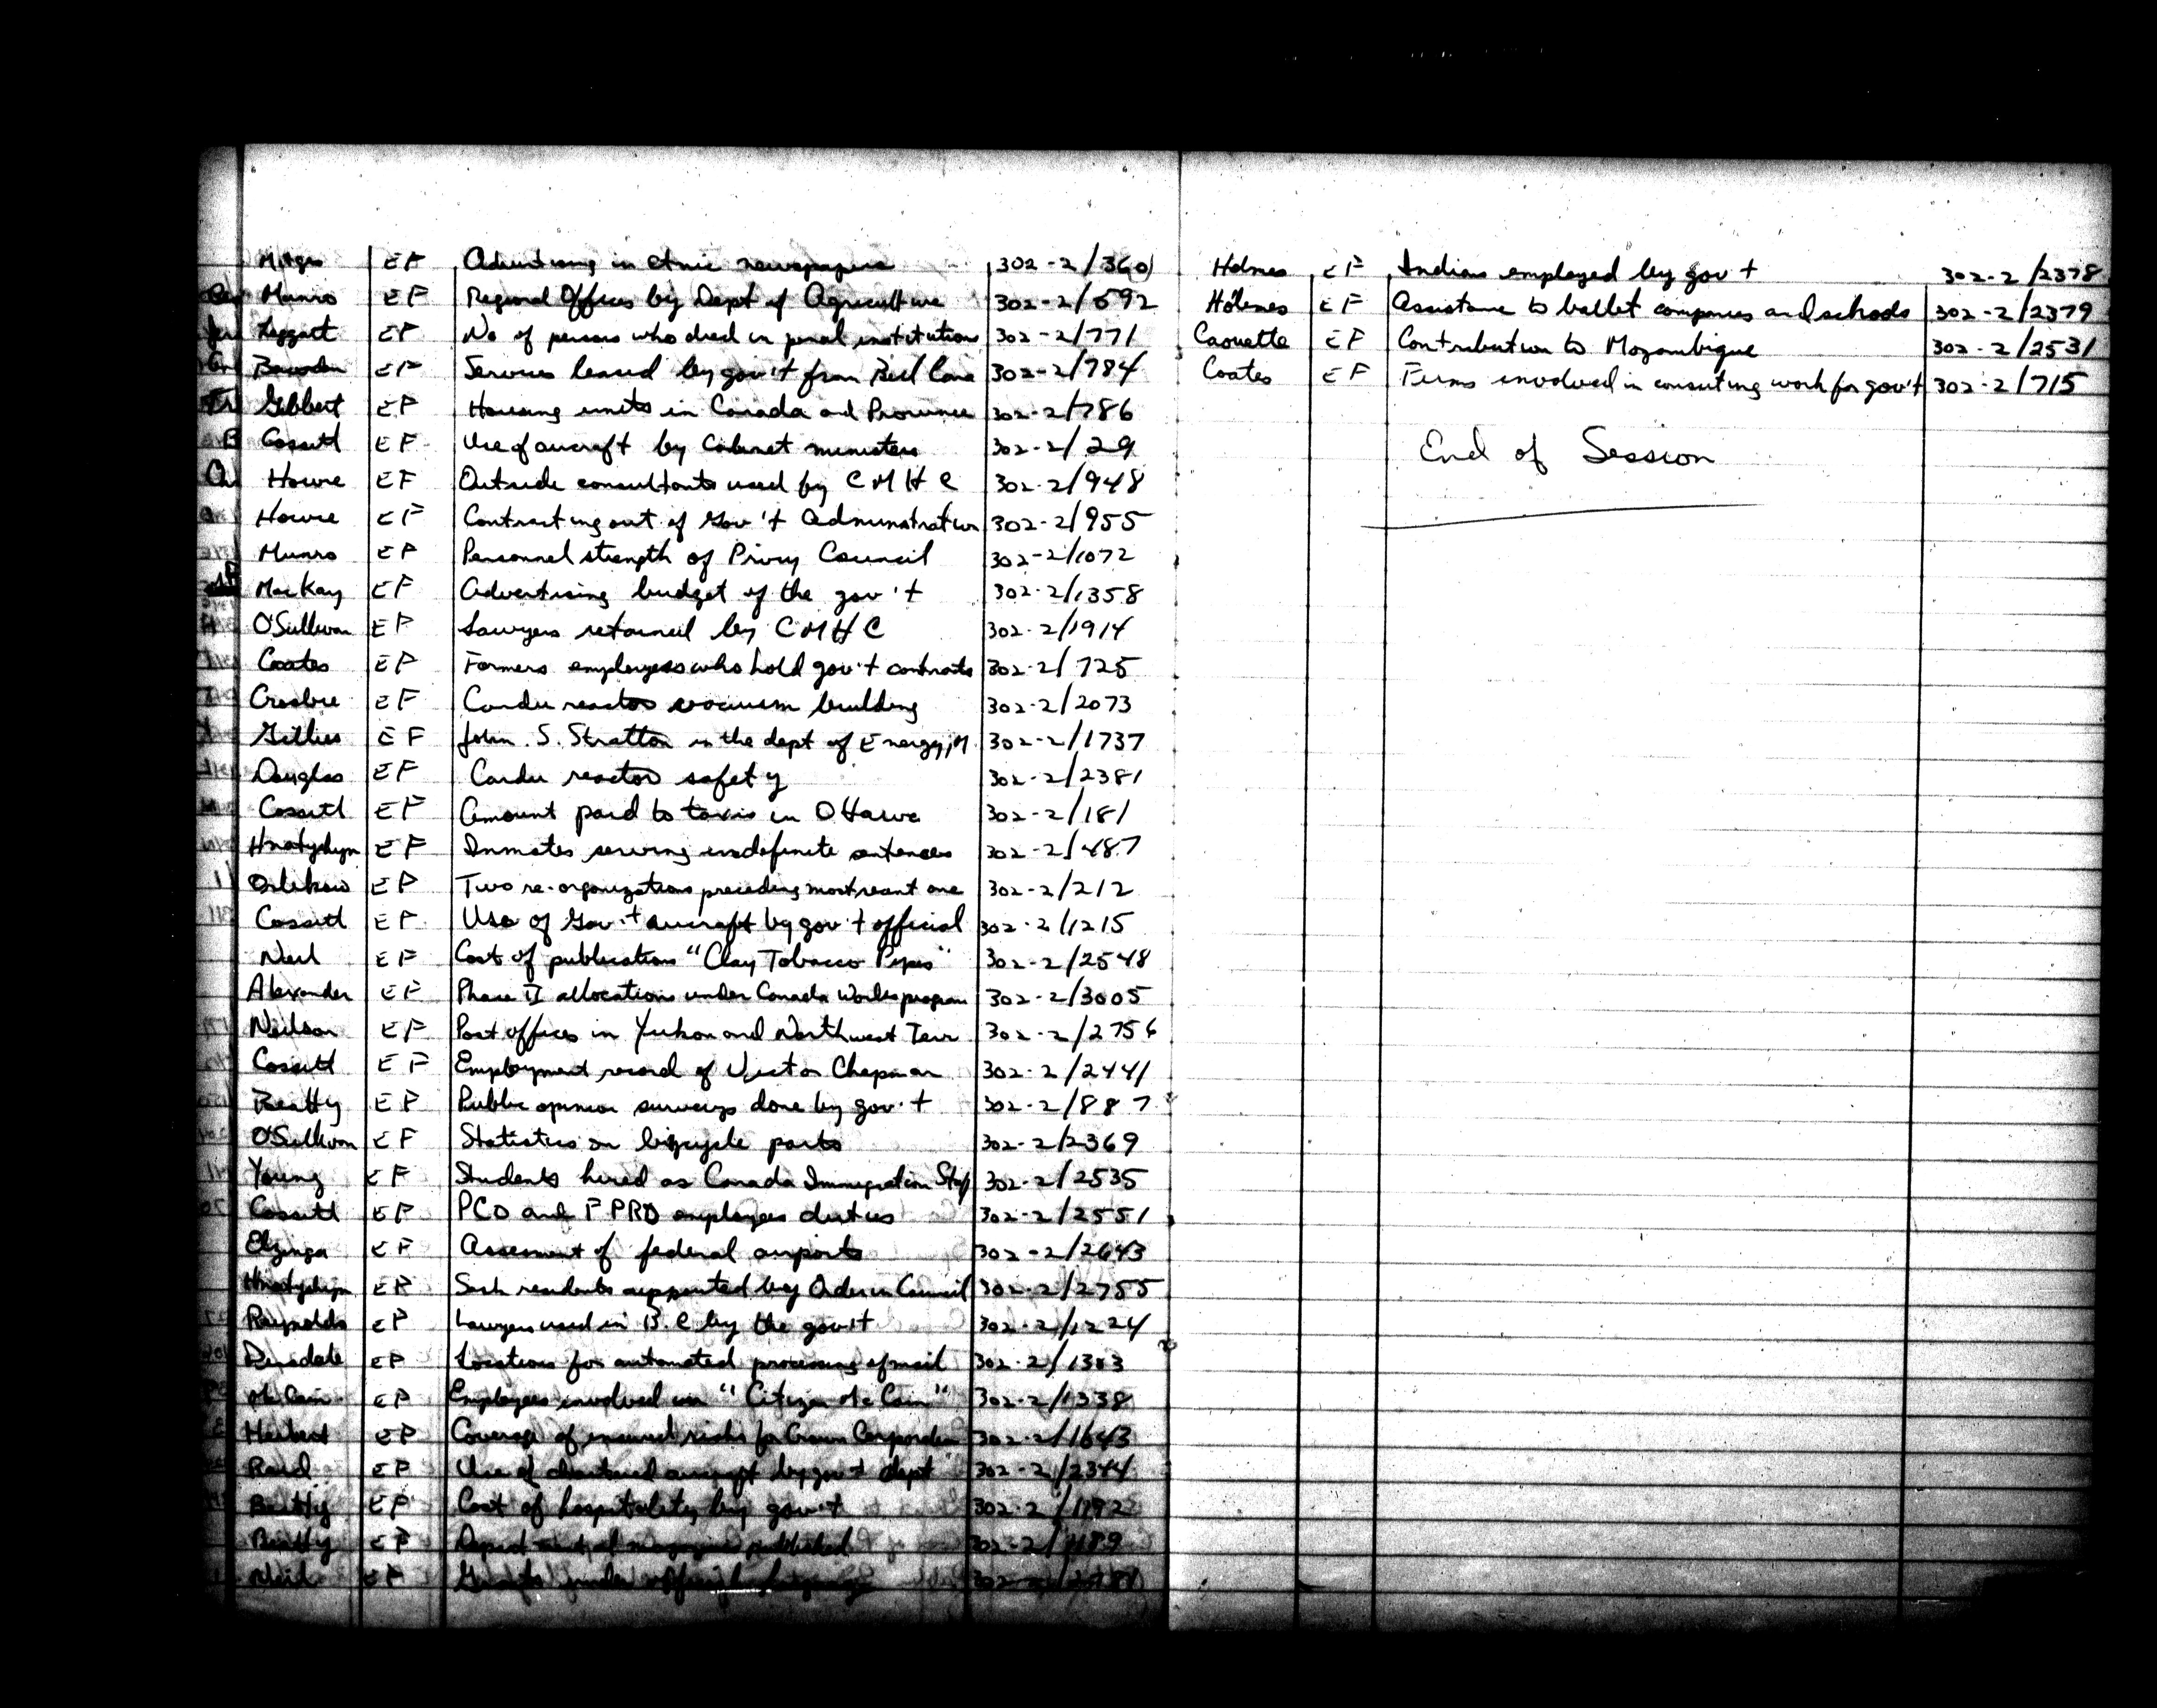 Mitges EF Advertising in etnic newspapers 302-2/360
Munro EF Regional Offices by Dept of Agriculture 302-2/692
Leggatt EF No of persons who died in penal institutions 302-2/771
EF Services leased by gov't from Bell Cana 302-2/784
EF Housing units in Canada and Provinces 302-2/786
Cossitt EF Use of aircraft by Cabinet ministers 302-2/29
Howie EF Outside consultants used by CMHC 302-2/948
Howie EF Contracting out of Gov't Administration 302-2/955
Munro EF Personnel strength of Privy Council 302-2/1072
MacKay EF Advertising budget of the gov't 302-2/1358
O'Sullivan EF Lawyers retained by CMHC 302-2/1914
Coates EF Formers employees who hold gov't contracts 302-2/725
Crosbie EF Candu reactor vacuum building 302-2/2073
Gillies EF John. S. Stratton in the dept of Energy, M 302-2/1737
Douglas EF Candu reactor safety 302-2/2381
Cossitt EF Amount paid to taxis in Ottawa 302-2/181
Hnatyshyn EF Inmates serving indefinite sentences 302-2/487
Orlikow EF Two re-organizations preceding most recent one 302-2/212
Cossitt EF Use of Gov't aircraft by gov't official 302-2/1215
Neil EF Cost of publication "Clay Tobacco Pipes" 302-2/2548
Alexander EF Phase II allocations under Canada Works program 302-2/3005
Neilson EF Post offices in Yukon and Northwest Terr 302-2/2756
Cossitt EF Employment record of Victor Chapman 302-2/2441
Beatty EF Public opinion surveys done by gov't 302-2/887
O'Sullivan EF Statistics on bicycle parts 302-2/2369
Young EF Students hired as Canada Immigration Staff 302-2/2535
Cossitt EF PCO and FPRO employees duties 302-2/2551
Elzinga EF Assesment of federal airports 302-2/2643
Hnatyshyn EF Sask residents appointed by Order in Council 302-2/2755
Reynolds EF Lawyers used in B.C by the gov't 302-2/1224
Dinsdale EF Locations for automated processing of mail 302-2/1383
McCain EF Employees involved in "Citizen McCain" 302-2/1338
Herbert EF Coverage of insured risks for Crown Corporation 302-2/1643
Reid EF Use of chartered aircraft by gov't dept 302-2/2344
Beatty EF Cost of hospitality by gov't 302-2/1192
Beatty EF published 302-2/1189
EF under official 302-2/
Holmes EF Indians employed by gov't 302-2/2378
Holmes EF Assistance to ballet companies and schools 302-2/2379
Caouette EF Contribution to Mozambique 302-2/2531
Coates EF Firms involved in consulting work for gov't 302-2/715
End of Session